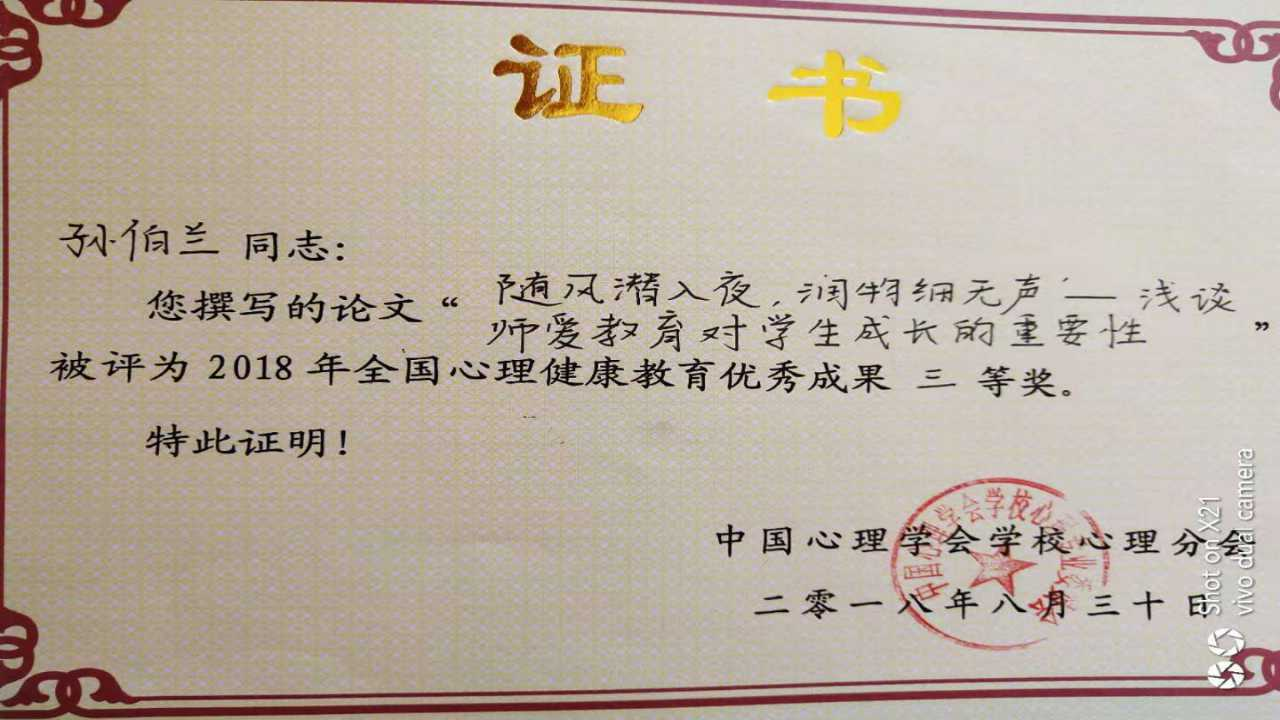 证书
孙伯兰 同志：
您撰写的论文“随风潜入夜，润物细无声——浅谈
师爱教育对学生成长的重要性”
被评为 2018 年全国心理健康教育优秀成果 三 等奖。
特此证明！
中国心理学会学校心理分会
二零一八年八月三十日
Shot on X21
vivo dual camera